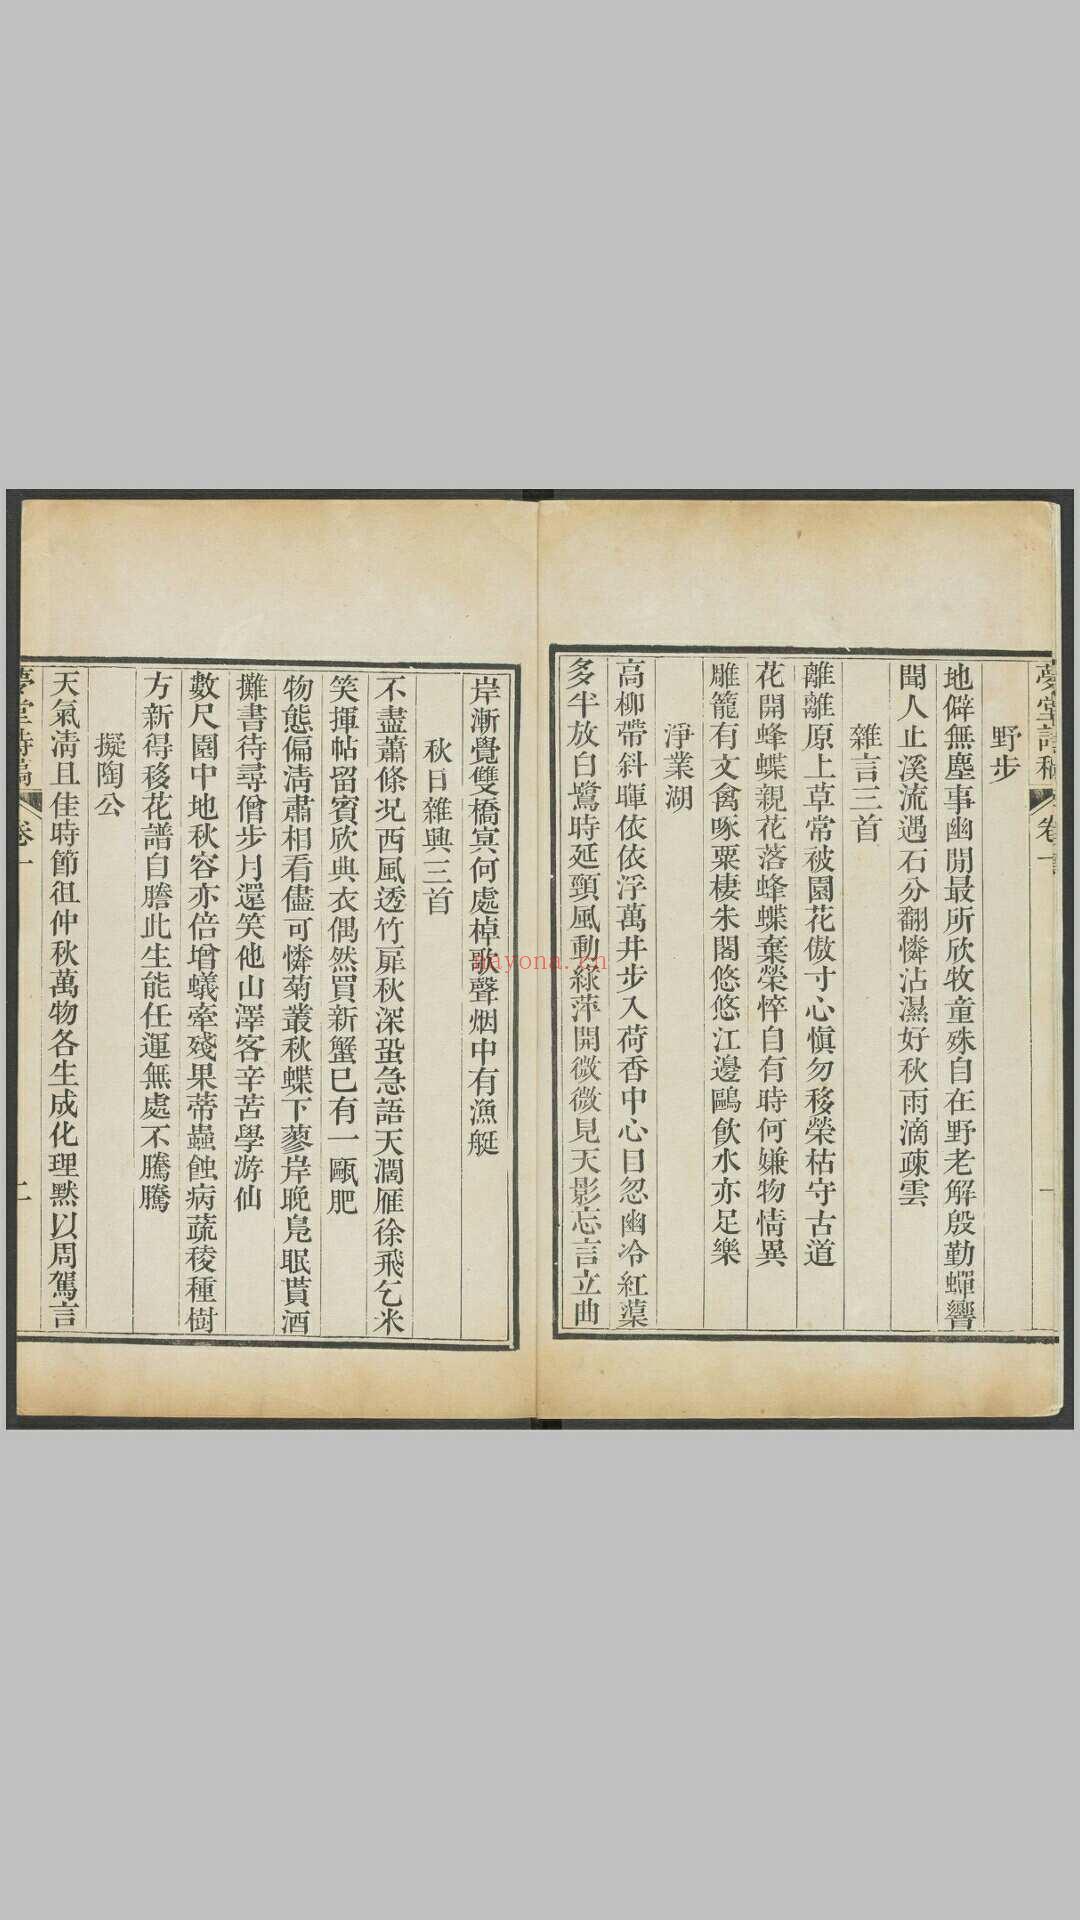 夢堂詩稿 卷一 一
野步
地僻無塵事幽閒最所欣牧童殊自在野老解殷勤蟬響
聞人止溪流遇石分翻憐沾濕好秋雨滴疎雲
雜言三首
離離原上草常被園花傲寸心愼勿移榮枯守古道
花開蜂蝶親花落蜂蝶棄榮悴自有時何嫌物情異
雕籠有文禽啄粟棲朱閣悠悠江邊鷗飲水亦足樂
淨業湖
高柳帶斜暉依依浮萬井步入荷香中心目忽幽冷紅蕖
多半放白鷺時延頸風動綠萍開微微見天影忘言立曲
岸漸覺雙橋㝠何處棹歌聲烟中有漁艇
秋日雜興三首
不盡蕭條況西風透竹扉秋深蛩急語天濶雁徐飛乞米
笑揮帖留賓欣典衣偶然買新蟹已有一甌肥
物態偏淸肅相看儘可憐菊叢秋蝶下蓼岸晚鳧眠貰酒
攤書待尋僧步月還笑他山澤客辛苦學游仙
數尺園中地秋容亦倍增蟻牽殘果蒂蟲蝕病蔬稜種樹
方新得移花譜自謄此生能任運無處不騰騰
擬陶公
天氣淸且佳時節徂仲秋萬物各生成化理默以周駕言
夢堂詩稿 卷一 二
nayona.cn